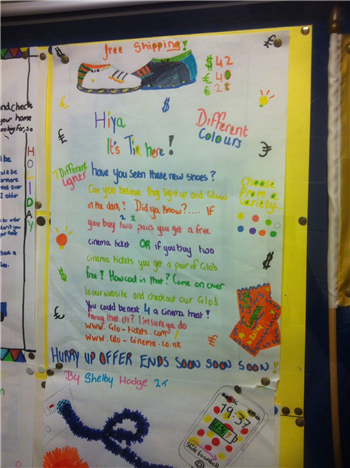 free Shipping!
$42
€40
£25
Hiya
It's Tia here!
Different Colours
Different Lights
have you seen these new shoes?
Can you believe they light up and Glow
in the dark! Did ya know?.... If
you buy two pairs you get a free
2 2
cinema ticket OR if you buy two
cinema tickets you get a pair of Glo's
free! How cool is that? Come on over
to our website and check out our Glo's
You could be next 4 a cinema treat!
fancy that eh? I'm sure ya do
www. Glo-Tickets.com
www. Glo-Cinema.co.uk
Choose from a variety
HURRY UP OFFER ENDS SOON SOON SOON!
By Shelby Hodge
19:37
HOLIDAY
and check
your home